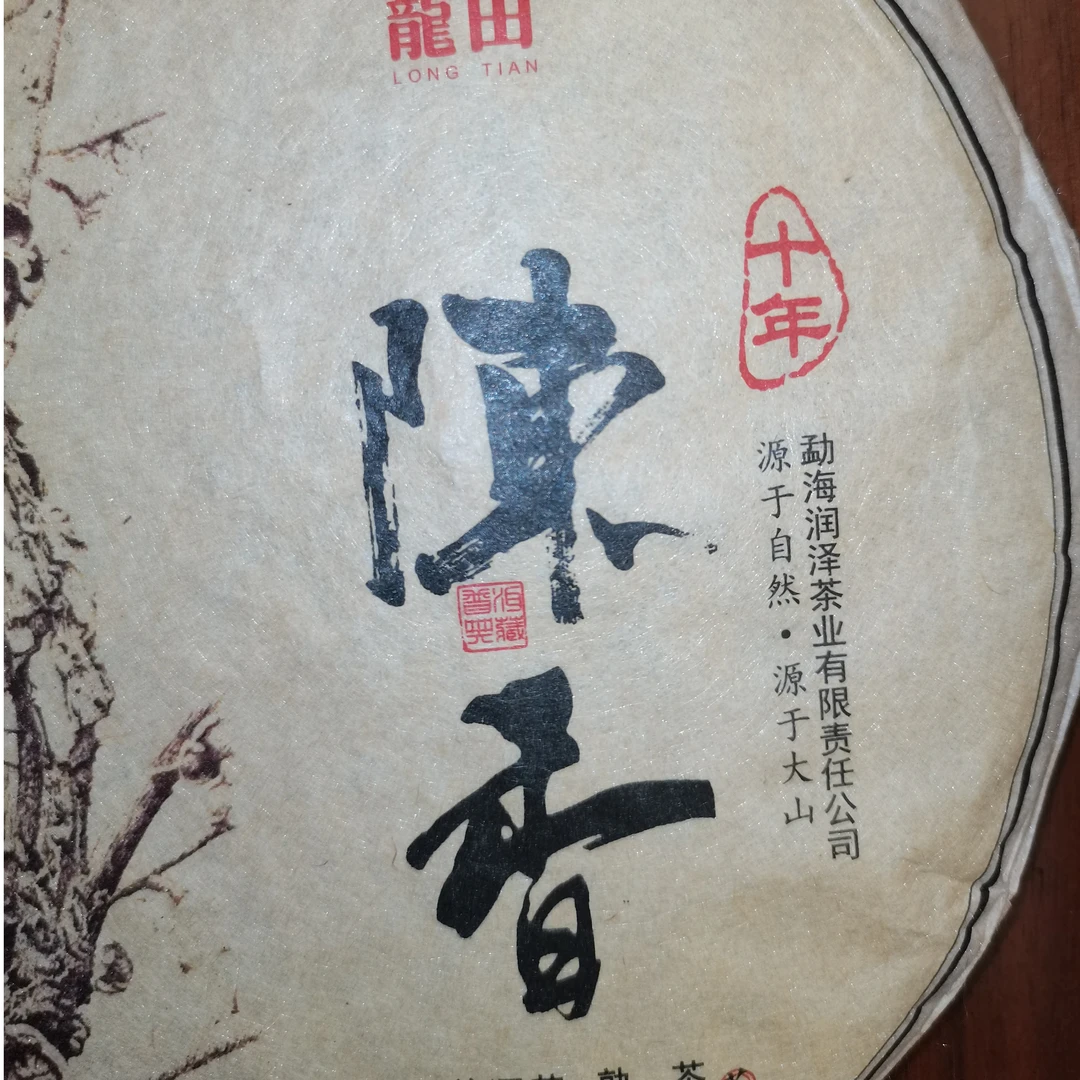 龍田
LONG TIAN
十年
勐海润泽茶业有限责任公司
源于自然·源于大山
陳香
普洱茶 熟 茶